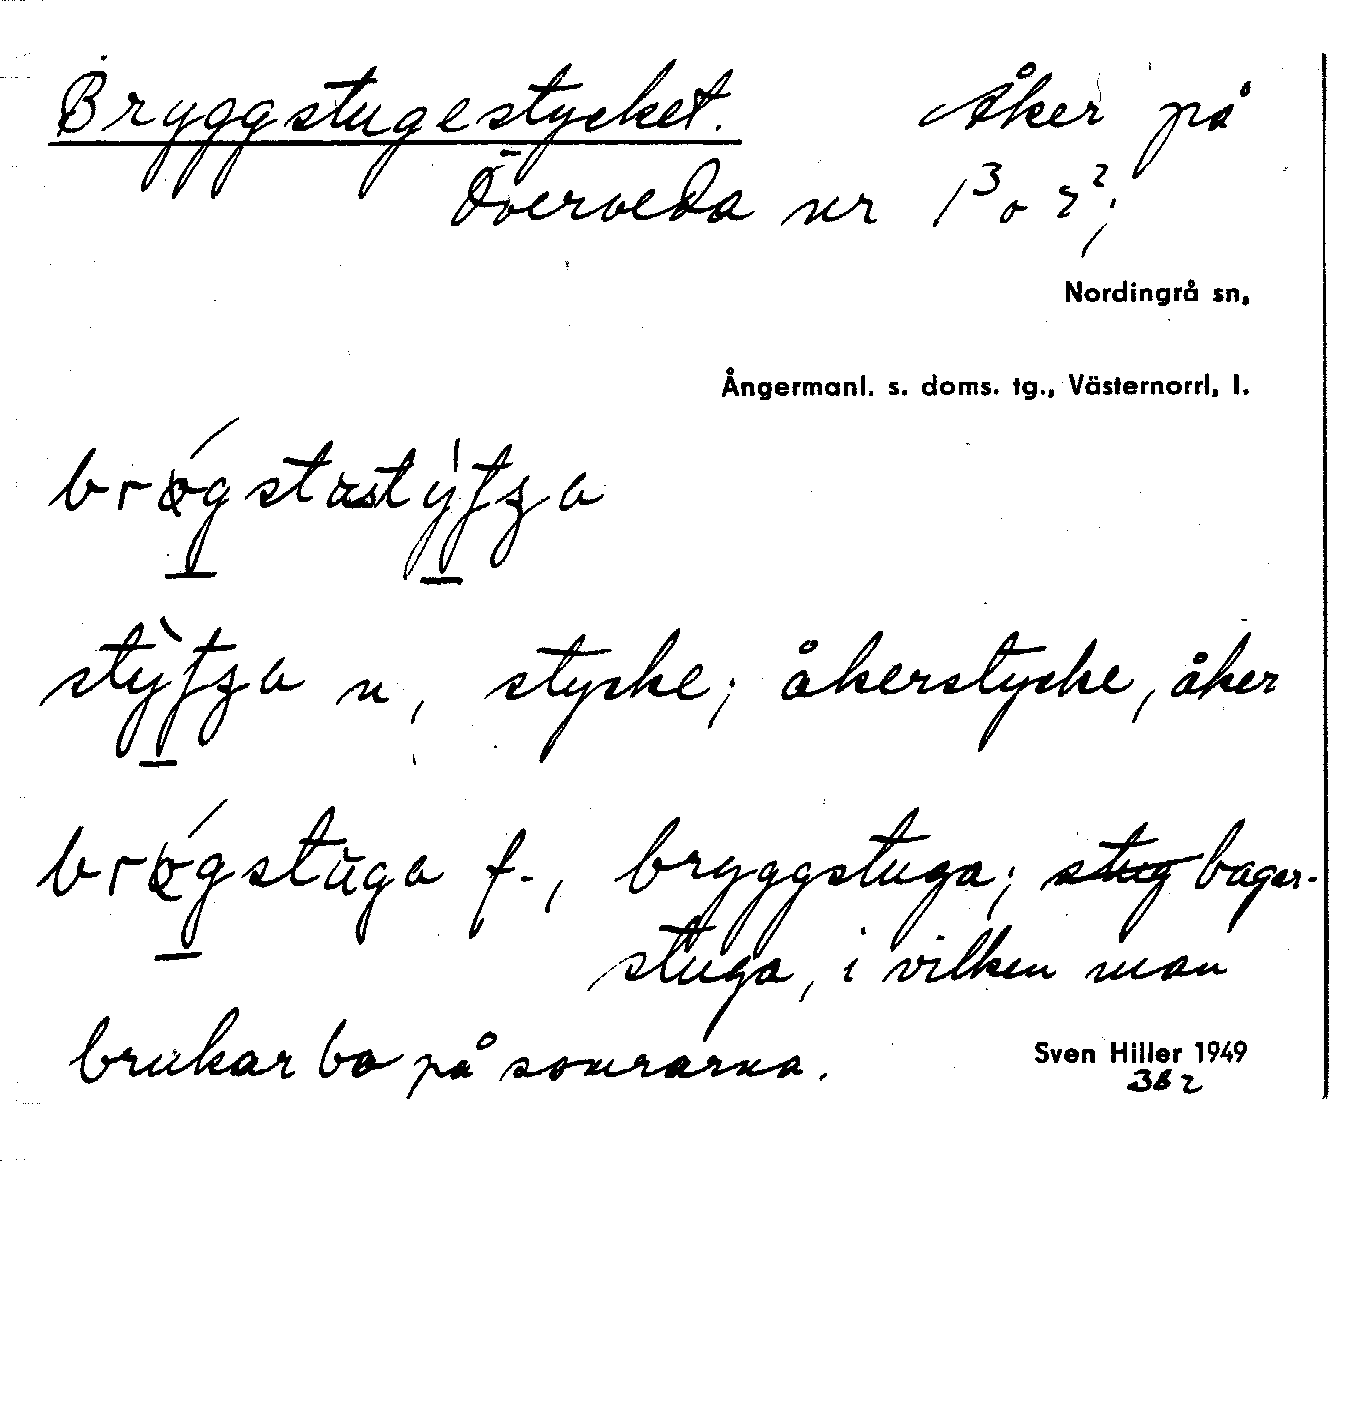 Bryggstugestycket. Åker på
Överveda nr 1³ o 2²;
Nordingrå sn,
Ångermanl. s. doms. tg., Västernorrl, l.
stycke; åkerstycke, åker
f., bryggstuga; stug bagar-
stuga, i vilken man
brukar bo på somrarna.
Sven Hiller 1949
3B2